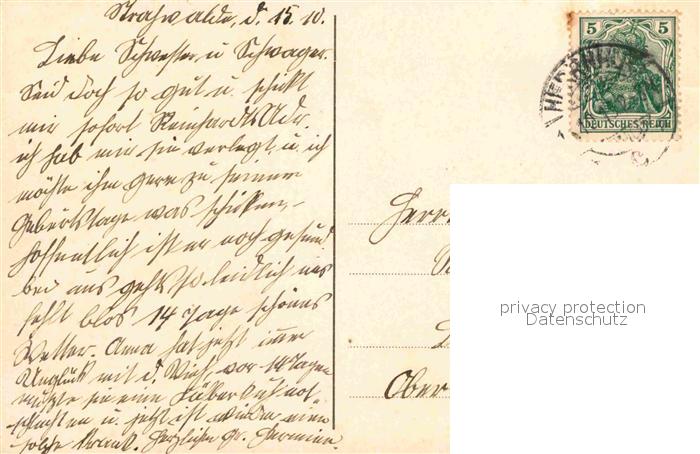 Strahwalde, d. 15.10.
Liebe Schwester u Schwager.
Seid doch so gut u. schickt
mir sofort Reinhardts Adr.
ich hab mir sie verlegt u. ich
möchte ihm gern zu seinem
Geburtstage was schicken,-
hoffentlich ist er noch gesund
bei uns gehts so leidlich uns
fehlt blos 14 Tage schönes
Wetter. Anna hat jetzt immer
Unglück mit d. Vieh, vor 14 Tagen
mußte sie eine Kuh not-
schlachten u. jetzt ist wieder eine
solche krank. Herzlichen Gr. Hermine.
5 5
DEUTSCHES REICH
HERRNHUT
Herrn
Ober
privacy protection
Datenschutz